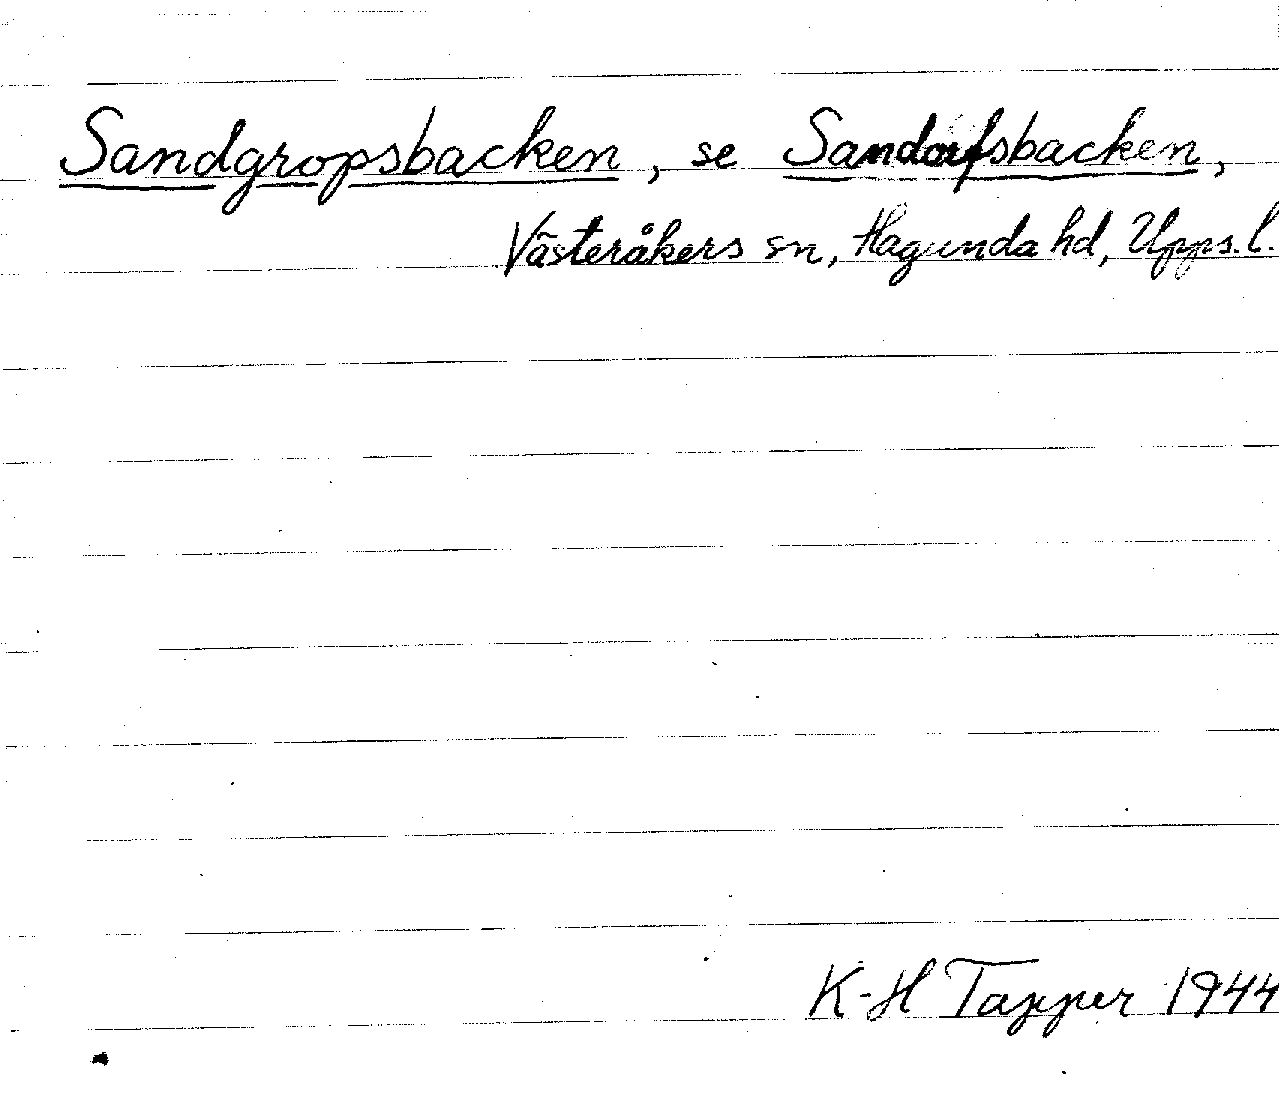 Sandgropsbacken, se Sandorfsbacken,
Västeråkers sn, Hagunda hd, Upps. l.
K-H Tapper 1944